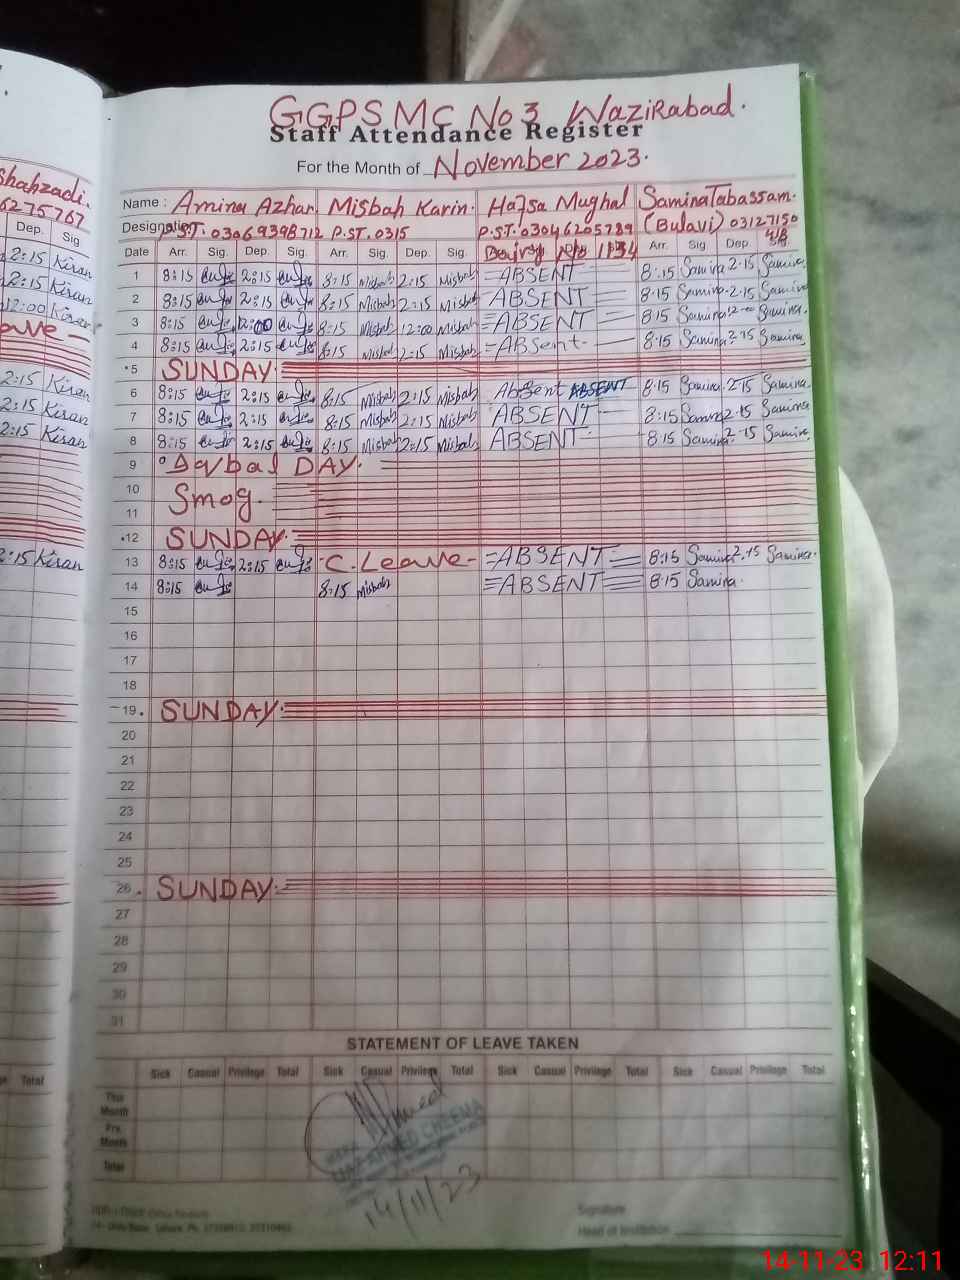 GGPS MC No 3 Wazirabad.
Staff Attendance Register
For the Month of November 2023.
Shahzadi.
6275767
Dep. Sig
2:15 Kiran
2:15 Kiran
12:00 Kiran
eave
2:15 Kiran
2:15 Kiran
2:15 Kiran
2:15 Kiran
Total
Name : Amina Azhar. Misbah Karin. Hafsa Mughal Samina Tabassam.
Designation P.ST. 03069398712 P.ST. 0315 P.S.T. 03046205789 (Bulavi) 03127150
Date Arr. Sig. Dep. Sig. Arr. Sig. Dep. Sig. No 1134 Arr. Sig Dep Sig
1 8:15 2:15 8:15 Misbah 2:15 Misbah ABSENT 8:15 Samina 2-15 Samina
2 8:15 2:15 8:15 Misbah 2:15 Misbah ABSENT 8:15 Samina 2-15 Samina
3 8:15 12:00 8:15 Misbah 12:00 Misbah ABSENT 8:15 Samina 12-00 Samina
4 8:15 2:15 8:15 Misbah 2:15 Misbah ABSent 8:15 Samina 2-15 Samina
5 SUNDAY.
6 8:15 2:15 8:15 Misbah 2:15 Misbah Absent ABSENT 8:15 Samina 2-15 Samina
7 8:15 2:15 8:15 Misbah 2:15 Misbah ABSENT 8:15 Samina 2-15 Samina
8 8:15 2:15 8:15 Misbah 2:15 Misbah ABSENT 8:15 Samina 2-15 Samina
9 DAY.
10 Smog.
11
12 SUNDAY.
13 8:15 2:15 C. Leave ABSENT 8:15 Samina 2-15 Samina
14 8:15 8:15 Misbah ABSENT 8:15 Samina
15
16
17
18
19 SUNDAY.
20
21
22
23
24
25
26 SUNDAY.
27
28
29
30
31
STATEMENT OF LEAVE TAKEN
Sick Casual Privilege Total Sick Casual Privilege Total Sick Casual Privilege Total Sick Casual Privilege Total
This Month
Pre. Month
Total
AHMED CHEEMA
14/11/23
Signature
Head of Institution
14-11-23 12:11